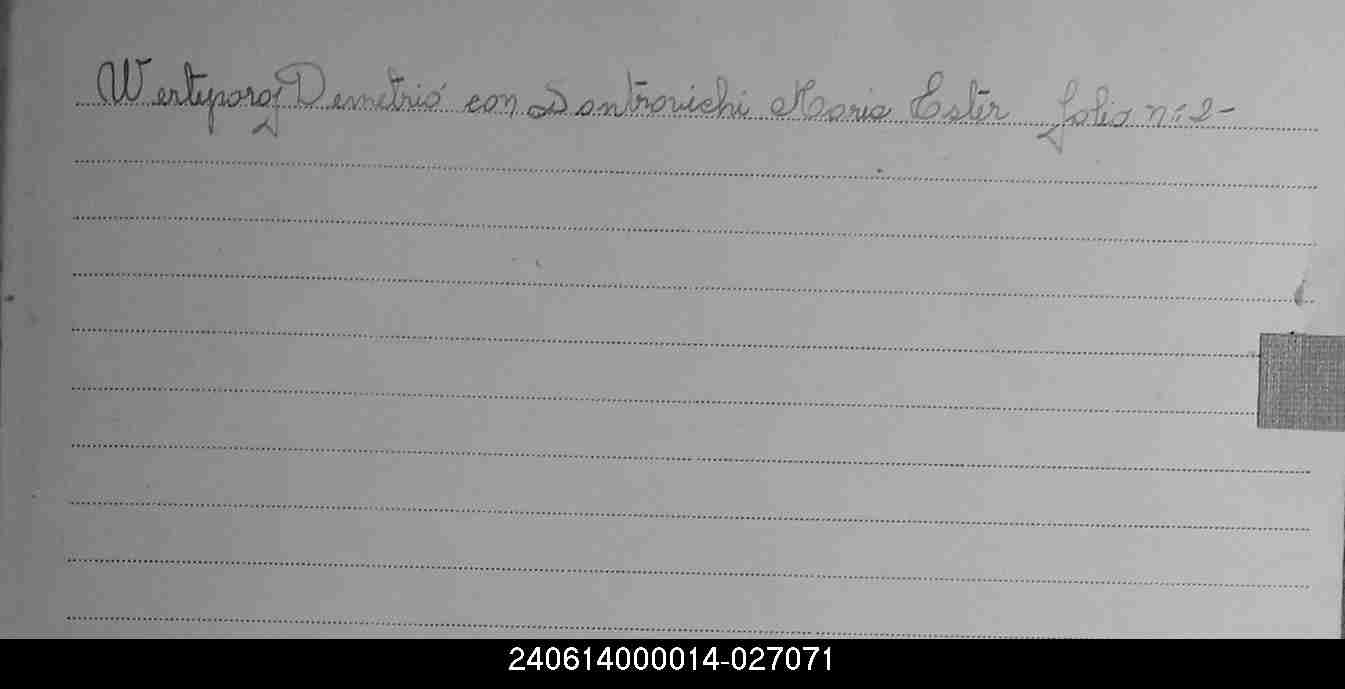 Wertyporoj Demetrio con Dontrovichi Maria Ester folio nº 2-
240614000014-027071